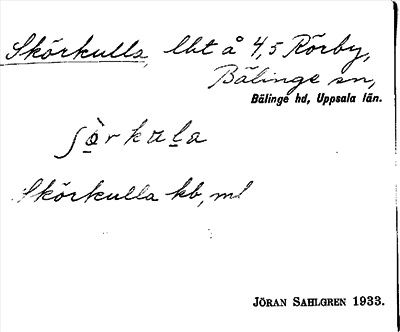 Skörkulla, lht å 4,5 Rörby,
Bälinge sn,
Bälinge hd, Uppsala län.
Skörkulla kb, ml
JÖRAN SAHLGREN 1933.